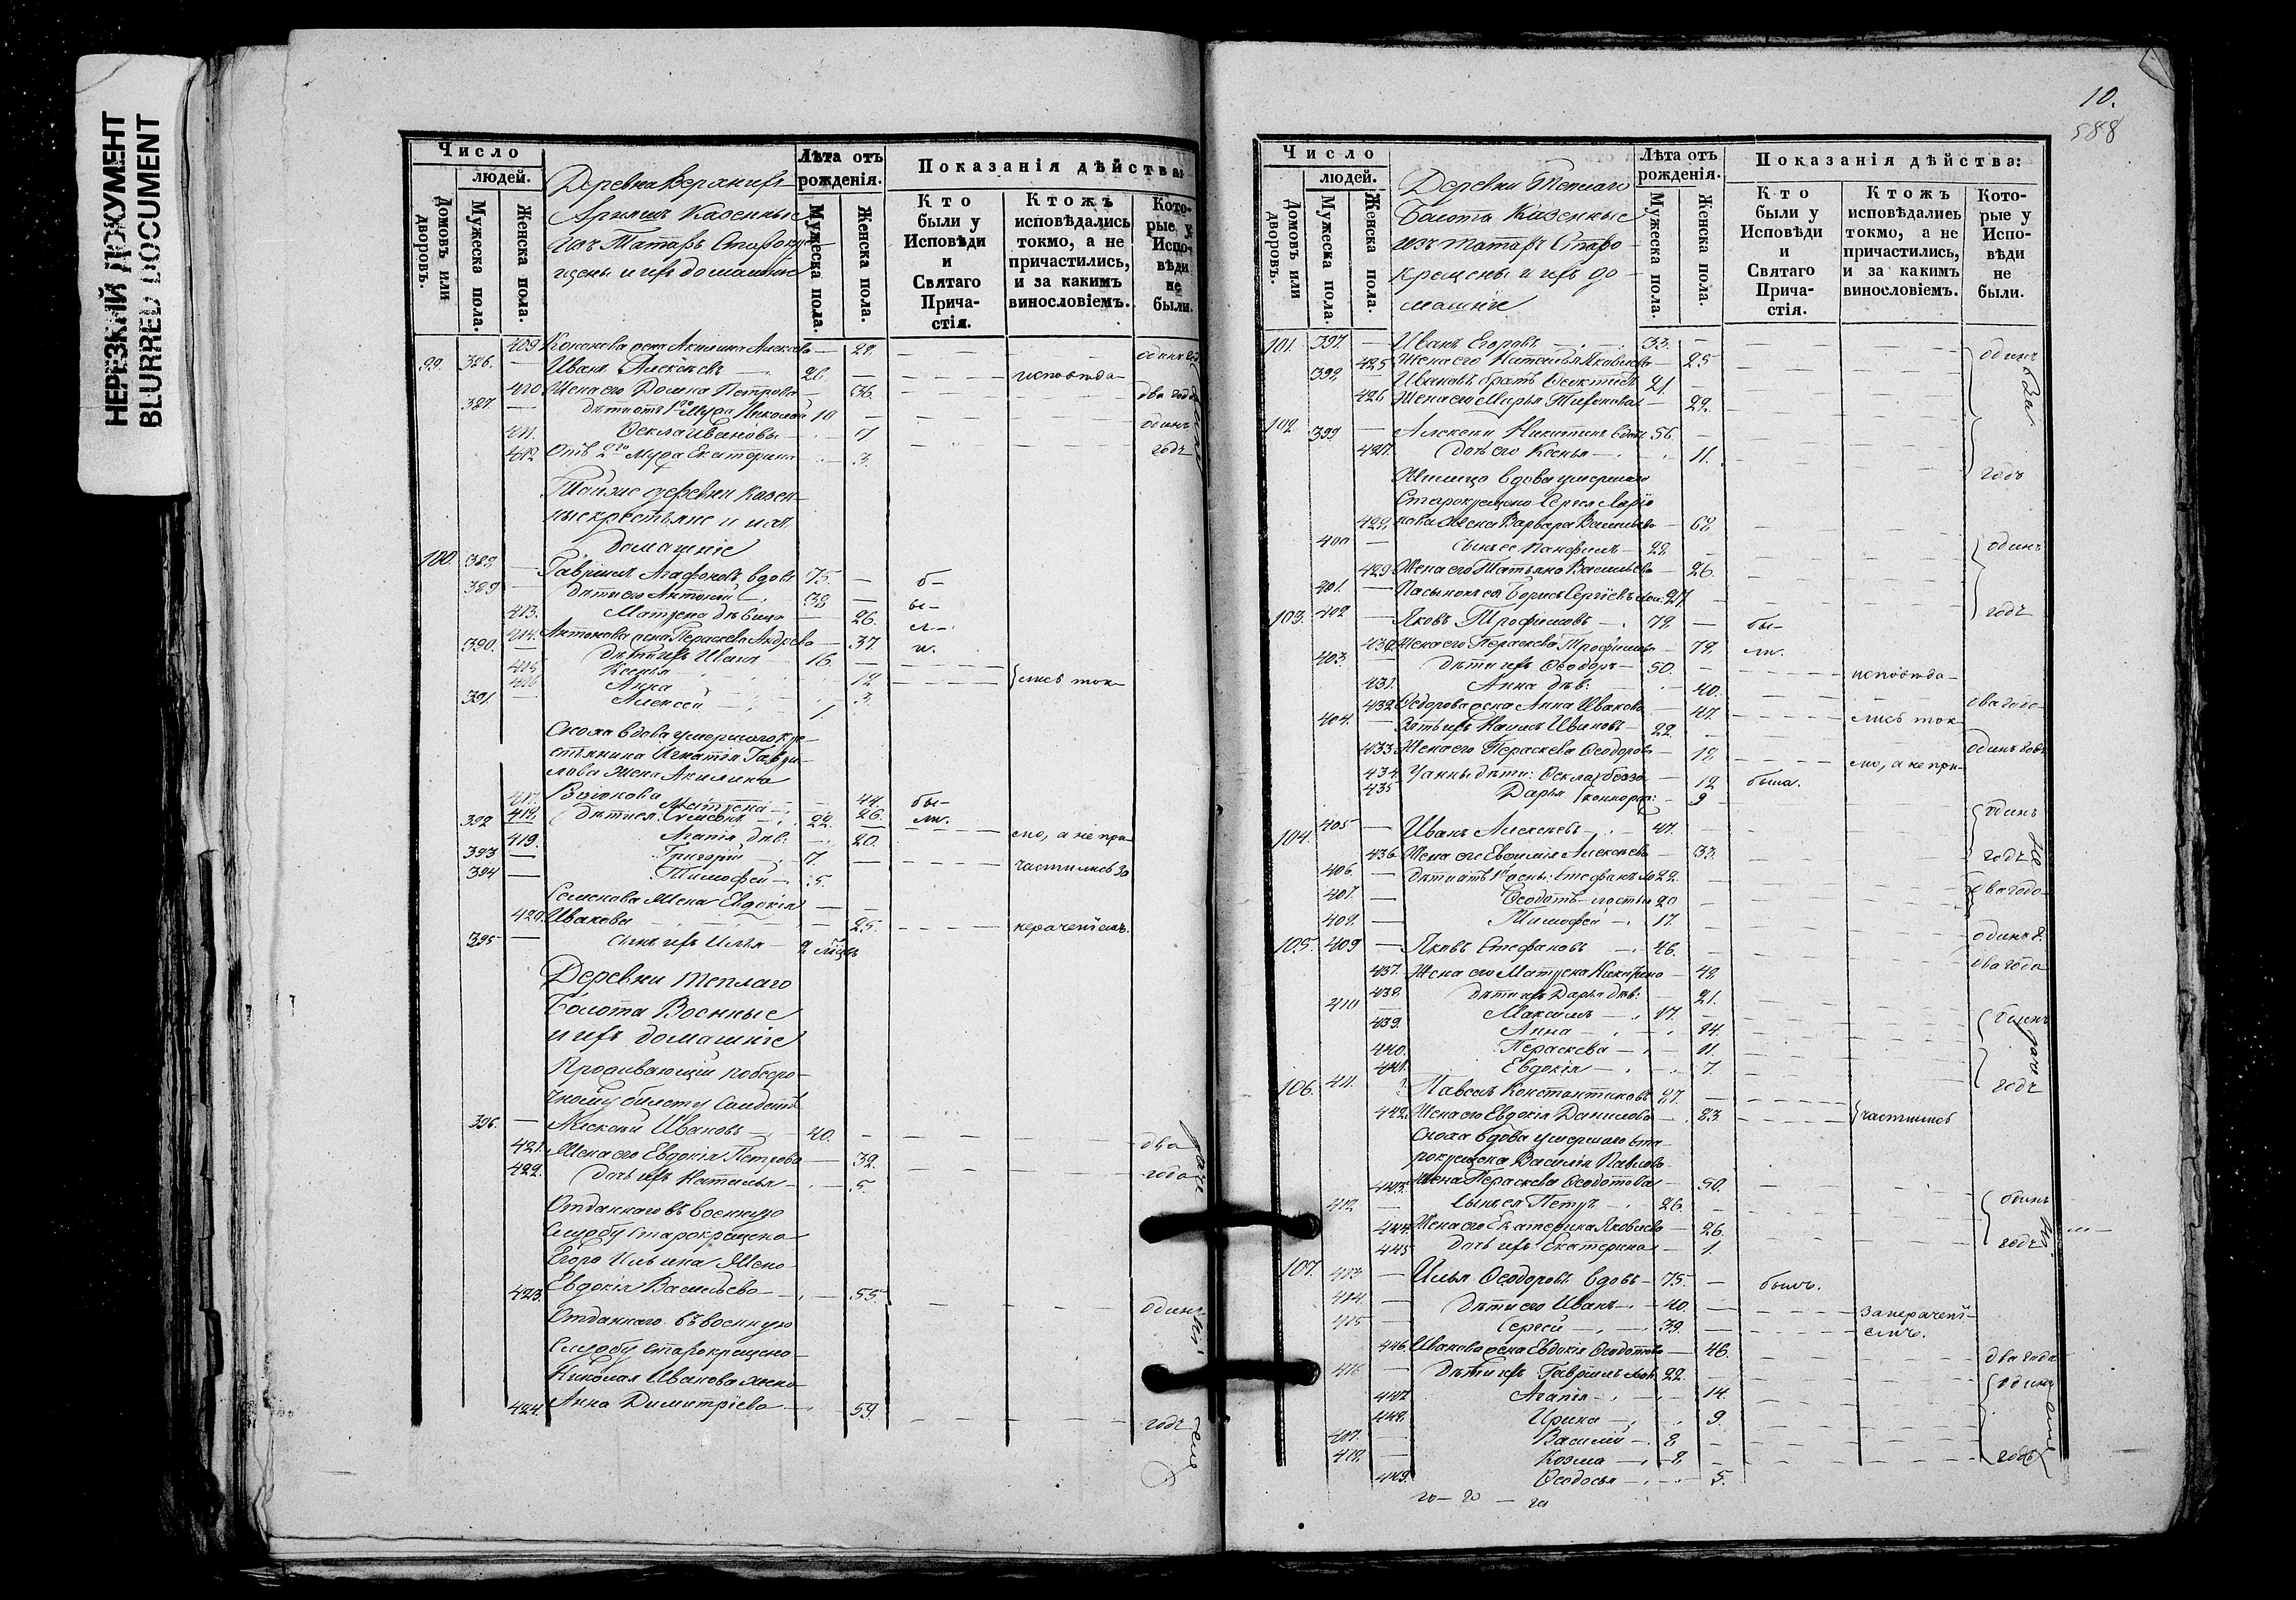 НЕРЕЗКИЙ ДОКУМЕНТ
BLURRED DOCUMENT
Число
людей.
Домовъ или дворовъ.
Мужеска пола.
Женска пола.
Деревня Верхнихъ
Казенные
изъ Татаръ Старокре-
щены и ихъ домашніе
Лѣта отъ рожденія.
Мужеска пола.
Женска пола.
Показанія дѣйства:
Кто были у Исповѣди и Святаго Прича-стія.
Ктожъ исповѣдались токмо, а не причастились, и за какимъ винословіемъ.
Кото-рые у Испо-вѣди не были.
409 жена Акилина
99. 386. Иванъ Алексѣевъ 26. исповѣда-
410 Жена его Домна Петрова 36. два года
387. дѣти отъ 1го мужа Николай 10
411. Ѳекла Иванова одинъ
412 Отъ 2го мужа Екатерина 3. годъ
Тойже деревни казен-
ные крестьяне и ихъ
домашніе
100. 388. Гавріилъ Агафоновъ вдовъ 75. б-
389 Дѣти его Антоній 38 ы-
413. Матрена дѣвица 26. л-
414. Антонова жена Параскева Андреева 37 и.
390. Дѣти ихъ Иванъ 16.
415 Ксенія 12 лись ток-
416 Анна 3.
391. Алексей 1.
Сноха вдова умершаго кре-
стьянина Игнатія Гаври-
лова жена Акилина
417. 44. бы-
418. Дѣти ея: Матрена 26. ли.
392 Симеонъ 22.
419. Агапія дѣв: 20. мо, а не при
393 Григорій 7.
394 Тимофей 5. частились за
Семенова жена Евдокія
420. Иванова 25. нераченіемъ.
395 сынъ ихъ Илья 2 мѣсяц
Деревни Теплаго
Болота Военные
и ихъ домашніе
Проживающій по безсро-
чному билету Солдатъ
396. Алексѣй Ивановъ 40. два
421. Жена его Евдокія Петрова 32.
422. Дочь ихъ Наталья 5. года
Отданнаго въ военную
службу старокрещена
Егора Ильина жена
423. Евдокія Васильева 55. одинъ
Отданнаго въ военную
службу старокрещена
Николая Иванова жена
424. Анна Димитріева 59. годъ
10.
588
Число
людей.
Домовъ или дворовъ.
Мужеска пола.
Женска пола.
Деревни Теплаго
Болота Казенные
изъ татаръ Старо-
крещены и ихъ до-
машніе
Лѣта отъ рожденія.
Мужеска пола.
Женска пола.
Показанія дѣйства:
Кто были у Исповѣди и Святаго Прича-стія.
Ктожъ исповѣдались токмо, а не причастились, и за какимъ винословіемъ.
Кото-рые у Испо-вѣди не были.
101. 397. Иванъ Егоровъ 33.
425 Жена его Наталья Яковлева 25 одинъ
398. Ивановъ братъ 21.
426 Жена его Марья 22.
102 399 Алексѣй Никитинъ вдовъ 56
427. Дочь его Ксенья 11. годъ
вдова умершаго
Старокрещена Сергія
428. жена Варвара Васильева 62
400 Сынъ ея Панфилъ 22 одинъ
429 Жена его Татьяна Васильева 26
401. Пасынокъ ея Борисъ Сергіевъ 27.
103. 402 Яковъ Трофимовъ 72 бы- годъ
430 Жена его Параскева Трофимова 72 ли.
403. Дѣти ихъ Ѳеодоръ 50. исповѣда-
431. Анна дѣв: 40.
432 Ѳедорова жена Анна Иванова 47. два года
404. Зять ихъ Ивановъ 22 лись ток-
433 Жена его Параскева Ѳеодорова 19. одинъ годъ
434. У Анны дѣти: Ѳекла 12 была. мо, а не при-
435 Дарья 9
104. 405 Иванъ Алексѣевъ 47. одинъ
436. Жена его Евѳимія Алексѣева 33. годъ
406. Дѣти отъ 1й жены: Стефанъ 22.
407. Ѳеодотъ 20 два года
408. Тимофей 17. одинъ г.
105. 409 Яковъ Стефановъ 46. два года
437. Жена его Матрена 42
438. Дѣти ихъ Дарья дѣв: 21.
410 Максимъ 17. одинъ
439. Анна 14.
440. Параскева 11.
441. Евдокія 7. годъ
106. 411. Павелъ Константиновъ 27.
442. Жена его Евдокія Данилова 23. частились
Сноха вдова умершаго ста-
рокрещена Василія Павлова
443. жена Параскева Ѳеодотова 50.
412. Сынъ ея Петръ 26. одинъ
444. Жена его Екатерина Яковлева 26.
445 Дочь ихъ Екатерина 1. годъ
107. 413 Илья Ѳеодоровъ вдовъ 75. былъ.
414. Дѣти его Иванъ 40. за нерачені-
415 Сергѣй 39. емъ.
446. Иванова жена Евдокія Ѳеодотова 46. два года
416 Дѣти ихъ Гавріилъ 22. одинъ
447 Агапія 14.
448. Ирина 9.
417. Василій 8
418. Козма 8. годъ
449. Ѳеодосья 5.